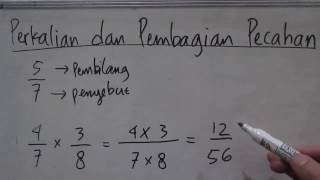 Perkalian dan Pembagian Pecahan
5/7 → Pembilang
→ penyebut
4/7 x 3/8 = 4 x 3 / 7 x 8 = 12/56